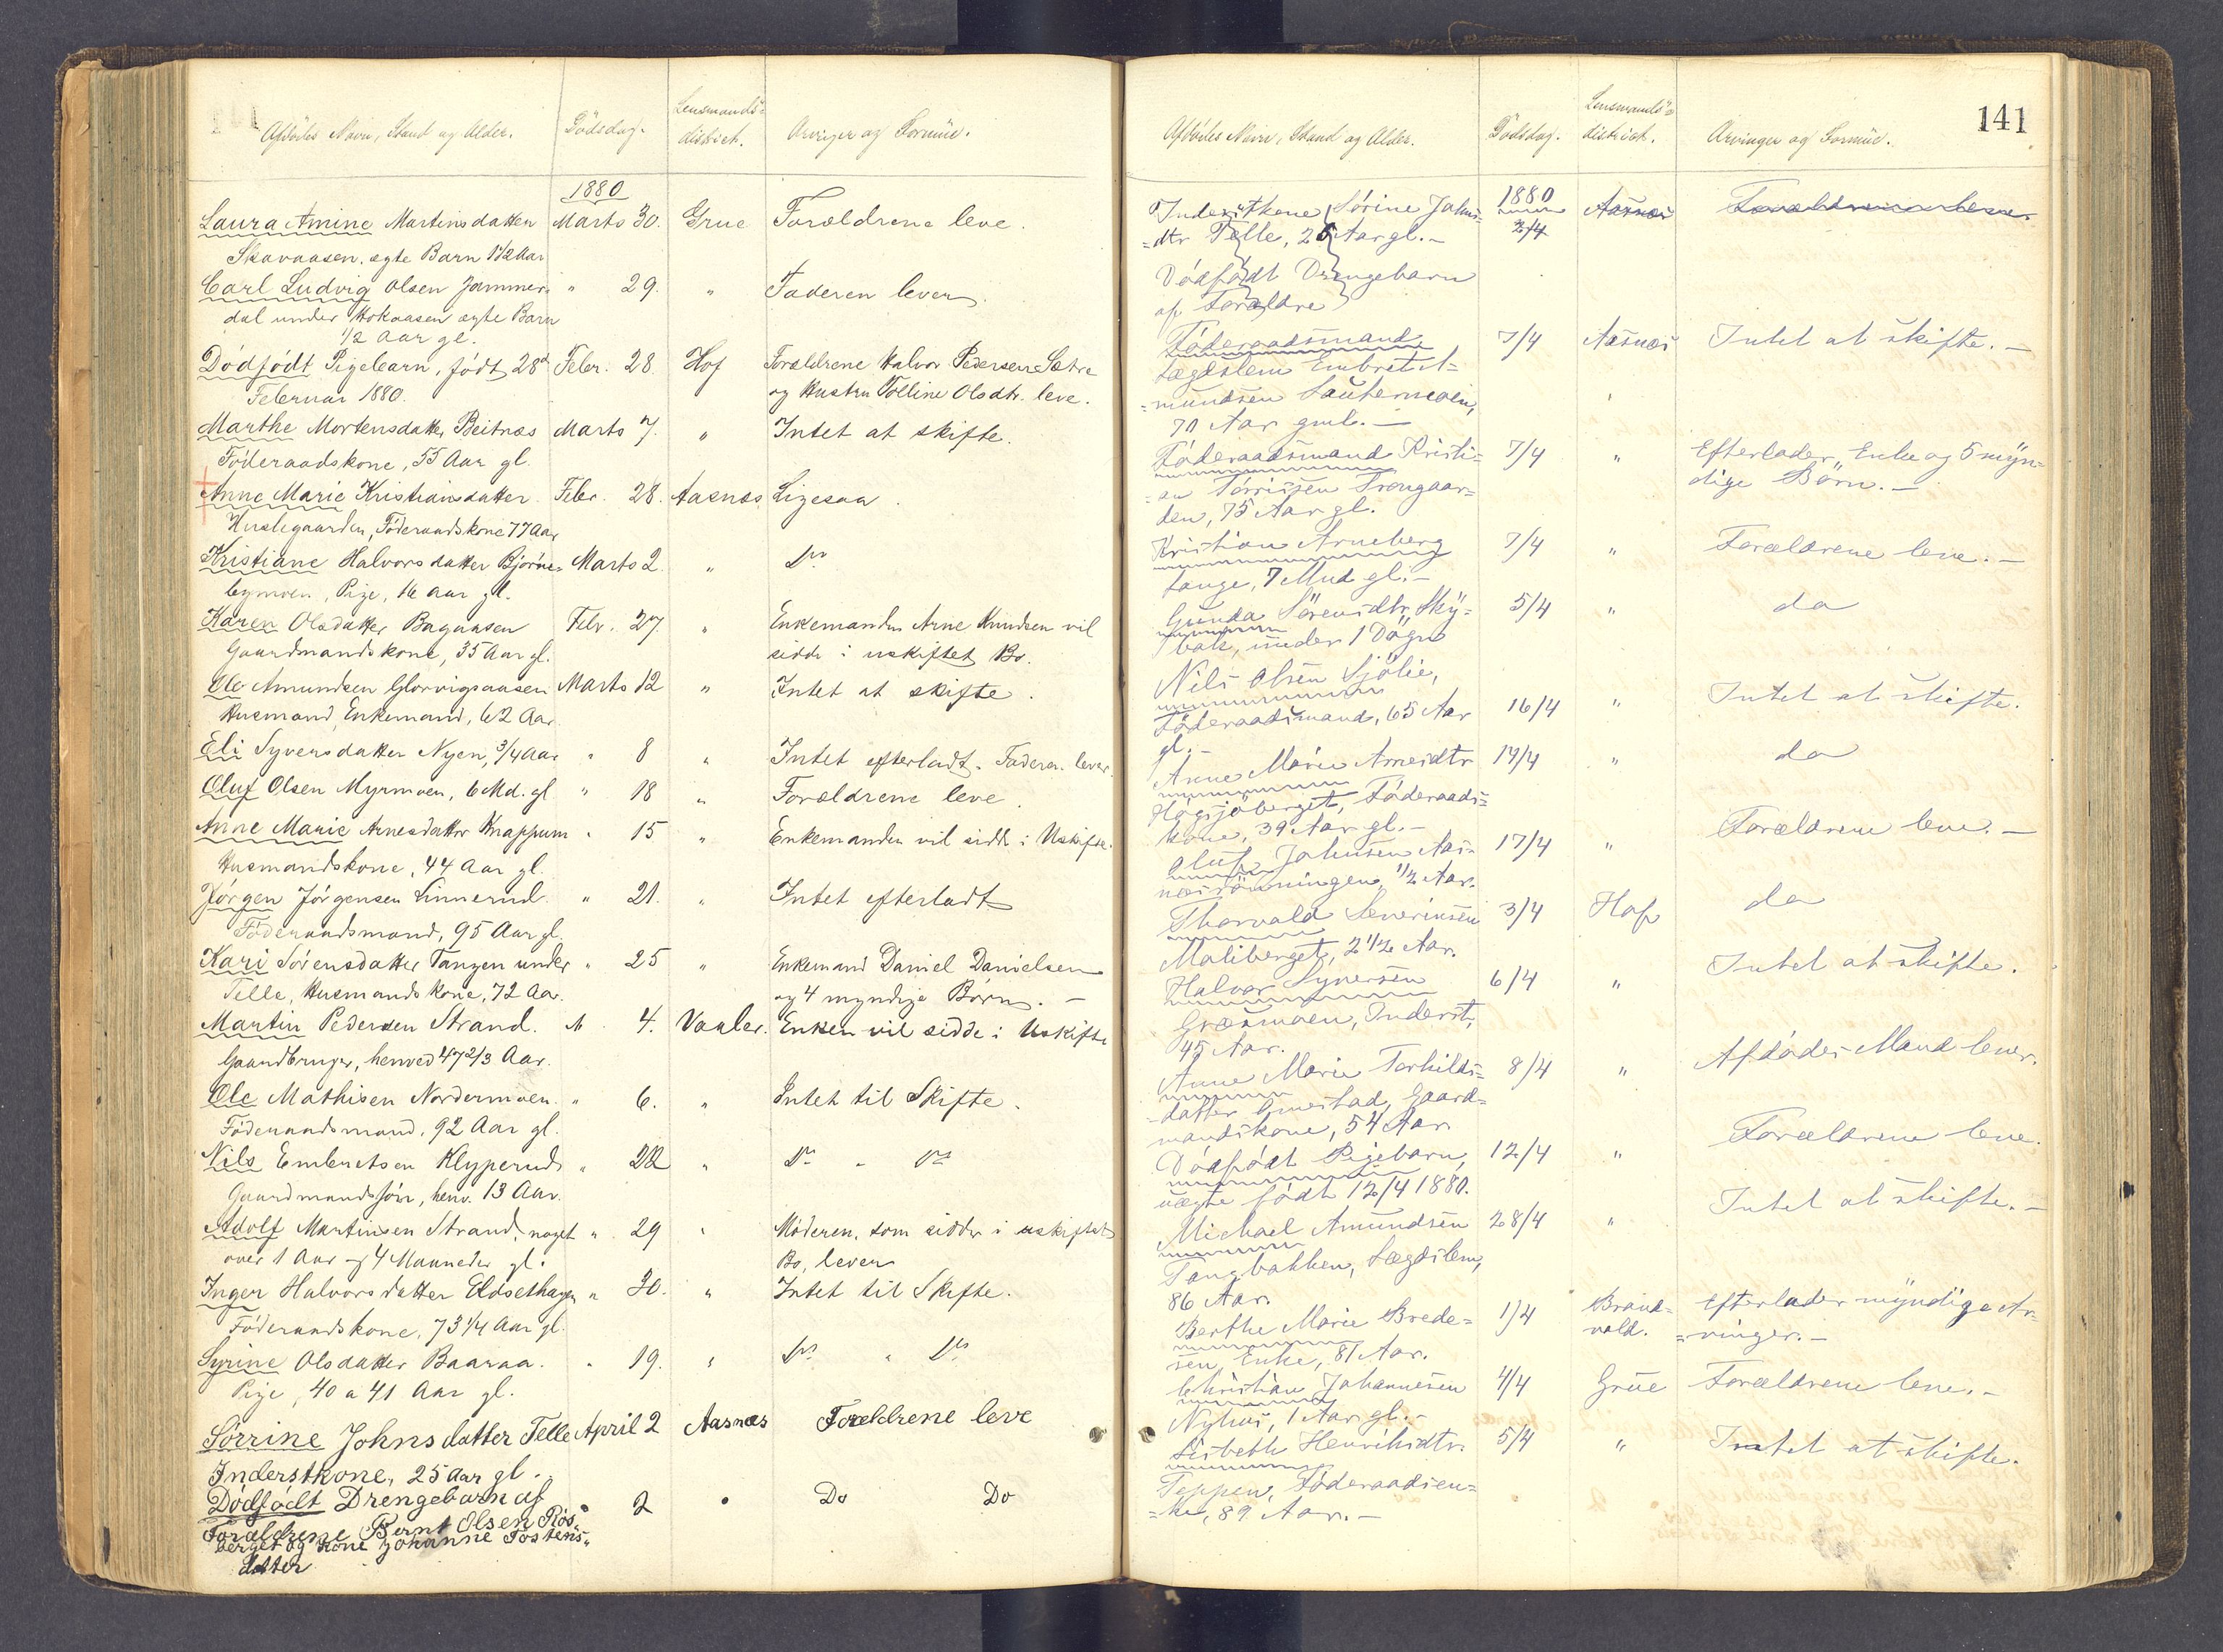 Afdödes Navn, Stand og Alder. Dödsdag. Lensmands=
district. Arvinger og Formüe.
1880
Laura Amine Martinsdatter Marts 30. Grue Forældrene leve.
Skavaasen, ægte Barn 1 1/2 Aar
Carl Ludvig Olsen Jammer= " 29. " Faderen lever.
dal under Hokaasen ægte Barn
1/2 Aar gl.
Dödfödt Pigebarn, födt 28de Febr. 28. Hof Forældrene Halvor Pedersen Sætre
Februar 1880. og Hustru Tolline Olsdtr. leve.
Marthe Mortensdatter Beitnæs Marts 7. " Intet at skifte.
Föderaadskone, 55 Aar gl.
Anne Marie Kristiansdatter Febr. 28. Aasnæs Ligesaa.
Föderaadskone 77 Aar
Kristiane Halvorsdatter Björne= Marts 2. " Do
bymoen, Pige, 16 Aar gl.
Karen Olsdatter Bagaasen Febr. 27. " Enkemanden Arne Knudsen vil
Gaardmandskone, 35 Aar gl. sidde i uskiftet Bo.
Ole Amundsen Glorvigsaasen Marts 12 " Intet at skifte.
Husmand, Enkemand, 62 Aar.
Eli Syversdatter Nyen, 3/4 Aar " 8 " Intet efterladt. Faderen lever.
Oluf Olsen Myrmoen, 6 Md. gl " 18 " Forældrene leve.
Anne Marie Arnesdatter Knappum " 15 " Enkemanden vil sidde i Uskifte.
Husmandskone, 44 Aar gl.
Jörgen Jörgensen Linnerud " 21. " Intet efterladt
Föderaadsmand, 95 Aar gl.
Kari Sörensdatter Tangen under " 25 " Enkemand Daniel Danielsen
Telle, Husmandskone, 72 Aar. og 4 myndige Börn. —
Martin Pedersen Strand. " 4. Vaaler. Enken vil sidde i Uskifte
Gaardbruger, henved 47 2/3 Aar.
Ole Mathisen Nordermoen. " 6. " Intet til Skifte.
Föderaadsmand, 92 Aar gl.
Nils Embretsen Klyperud " 22 " Do " Do
Gaardmandssön, henv. 13 Aar.
Adolf Martinsen Strand, noget " 29 " Moderen, som sidder i uskiftet
over 1 Aar og 4 Maaneder gl. Bo, lever
Inger Halvorsdatter Eldsethagen " 30. " Intet til Skifte.
Föderaadskone, 73 1/4 Aar gl.
Syrine Olsdatter Baaraa. " 19. " Do " Do
Pige, 40 a 41 Aar gl.
Sörrine Johnsdatter Telle April 2 Aasnæs Forældrene leve
Inderstkone, 25 Aar gl.
Dödfödt Drengebarn af " 2 " Do Do
Forældrene Bernt Olsen Rös=
berget og Kone Johanne Tostens=
datter
141
Afdödes Navn, Stand og Alder. Dödsdag. Lensmands=
district. Arvinger og Formüe.
Inderstkone Sörine Johns= 1880 Aasnæs Forældrene leve.
=dtr Telle, 25 Aar gl.— 2/4
Dödfödt Drengebarn
af Forældre
Föderaadsmand, 7/4 Aasnæs Intet at skifte.—
Lægdslem Embret A=
=mundsen Sautermoen,
70 Aar gml.—
Föderaadsmand Kristi= 7/4 " Efterlader Enke og 5 myn=
=an Törrissen Trongaar= dige Börn.—
den, 75 Aar gl.
Kristian Arneberg 7/4 " Forældrene leve.—
Lange, 7 Mnd gl.—
Gunda Sörensdtr. Sky= 5/4 " do
bak, under 1 Dögn
Nils Olsen Sjölie,
Föderaadsmand, 65 Aar 16/4 " Intet at skifte.
gl.—
Anne Marie Arnesdtr 14/4 " do
Högsjöberget, Föderaads=
kone, 39 Aar gl.—
Oluf Johnsen Aas= 17/4 " Forældrene leve.—
næsrönningen, 1/2 Aar.
Thorvald Severinsen 3/4 Hof do
Maliberget, 2 1/2 Aar.
Halvor Syversen 6/4 " Intet at skifte.
Græsmoen, Inderst,
45 Aar.
Anne Marie Torkilds= 8/4 " Afdödes Mand lever.
datter Gaard=
mandskone, 54 Aar.
Dödfödt Pigebarn, 12/4 " Forældrene leve.
uægte födt 12/4 1880.
Michael Amundsen 28/4 " Intet at skifte.—
Tangbakken, Lægdslem,
86 Aar.
Berthe Marie Brede= 1/4 Brand= Efterlader myndige Ar=
sen, Enke, 81 Aar. vold. =vinger.—
Christian Johannesen 4/4 Grue Forældrene leve.—
Nyhus, 1 Aar gl.—
Lisbeth Henriksdtr. 5/4 " Intet at skifte.
Teppen, Föderaadsen=
=ke, 89 Aar.—